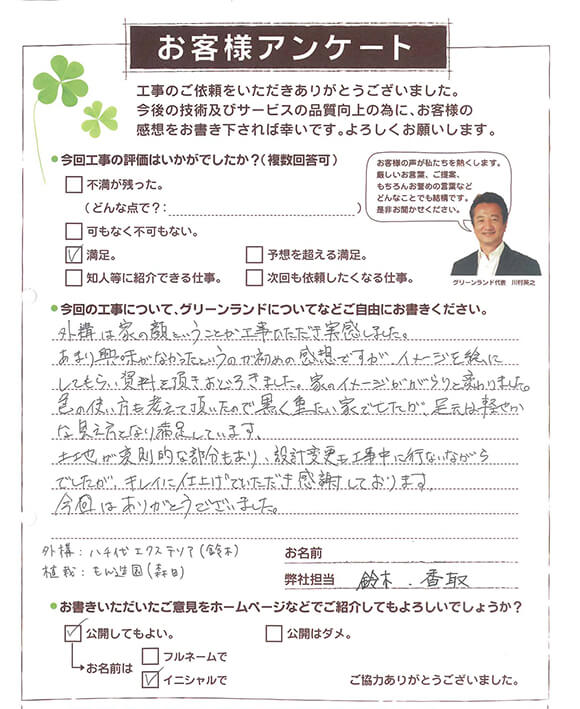 お客様アンケート
工事のご依頼をいただきありがとうございました。
今後の技術及びサービスの品質向上の為に、お客様の
感想をお書き下されば幸いです。よろしくお願いします。
今回工事の評価はいかがでしたか?(複数回答可)
不満が残った。
(どんな点で?: )
可もなく不可もない。
満足。
予想を超える満足。
知人等に紹介できる仕事。
次回も依頼したくなる仕事。
お客様の声が私たちを熱くします。
厳しいお言葉、ご提案、
もちろんお誉めの言葉など
どんなことでも結構です。
是非お聞かせください。
グリーンランド代表 川村英之
今回の工事について、グリーンランドについてなどご自由にお書きください。
外構は家の顔ということが工事いただき実感しました。
あまり興味がなかったというのが初めの感想ですが、イメージを絵に
してもらい資料を頂きおどろきました。家のイメージががらりと変わりました。
色の使い方も考えて頂いたので黒く重たい家でしたが、足元は軽やか
な見え方となり満足しています。
土地が変則的な部分もあり、設計変更も工事中に行ないながら
でしたが、キレイに仕上げていただき感謝しております。
今回はありがとうございました。
外構:ハチ代エクステリア(鈴木)
植栽:もん造園(森日)
お名前
弊社担当 鈴木.香取
お書きいただいたご意見をホームページなどでご紹介してもよろしいでしょうか?
公開してもよい。
公開はダメ。
お名前は
フルネームで
イニシャルで
ご協力ありがとうございました。